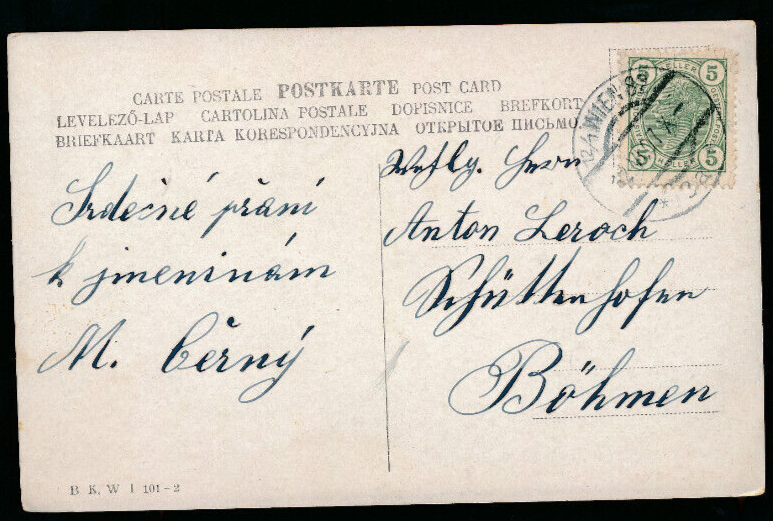 CARTE POSTALE POSTKARTE POST CARD
LEVELEZŐ-LAP CARTOLINA POSTALE DOPISNICE BREFKORT
BRIEFKAART KARTA KORESPONDENCYJNA ОТКРЫТОЕ ПИСЬМО
Srdečné přání
k jmeninám
M. Černý
Herrn
Anton Leroch
Schüttenhofen
Böhmen
5 HELLER 5
5 HELLER 5
WIEN
B K W I 101-2